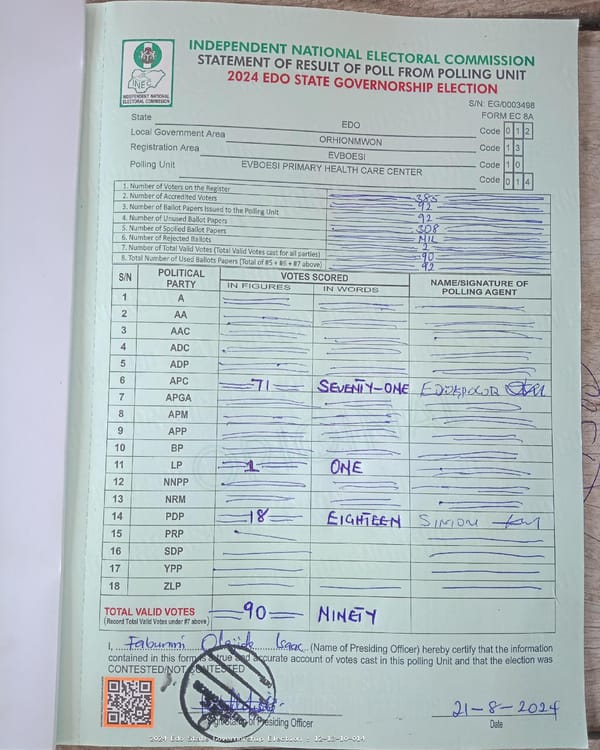 INDEPENDENT NATIONAL ELECTORAL COMMISSION
STATEMENT OF RESULT OF POLL FROM POLLING UNIT
2024 EDO STATE GOVERNORSHIP ELECTION
INEC
INDEPENDENT NATIONAL
ELECTORAL COMMISSION
S/N: EG/0003498
FORM EC 8A
State EDO Code 0 1 2
Local Government Area ORHIONMWON Code 1 3
Registration Area EVBOESI Code 1 0
Polling Unit EVBOESI PRIMARY HEALTH CARE CENTER Code 0 1 4
1. Number of Voters on the Register 385
2. Number of Accredited Voters 92
3. Number of Ballot Papers Issued to the Polling Unit 92
4. Number of Unused Ballot Papers 308
5. Number of Spoiled Ballot Papers NIL
6. Number of Rejected Ballots 2
7. Number of Total Valid Votes (Total Valid Votes cast for all parties) 90
8. Total Number of Used Ballots Papers (Total of #5 + #6 + #7 above) 92
S/N POLITICAL PARTY VOTES SCORED NAME/SIGNATURE OF POLLING AGENT
IN FIGURES IN WORDS
1 A
2 AA
3 AAC
4 ADC
5 ADP
6 APC 71 SEVENTY-ONE
7 APGA
8 APM
9 APP
10 BP
11 LP 1 ONE
12 NNPP
13 NRM
14 PDP 18 EIGHTEEN SIMION
15 PRP
16 SDP
17 YPP
18 ZLP
TOTAL VALID VOTES 90 NINETY
(Record Total Valid Votes under #7 above)
I, Isaac (Name of Presiding Officer) hereby certify that the information
contained in this form is a true and accurate account of votes cast in this polling Unit and that the election was
CONTESTED/NOT CONTESTED
21-8-2024
Signature of Presiding Officer Date
2024 Edo State Governorship Election - 12-13-10-014